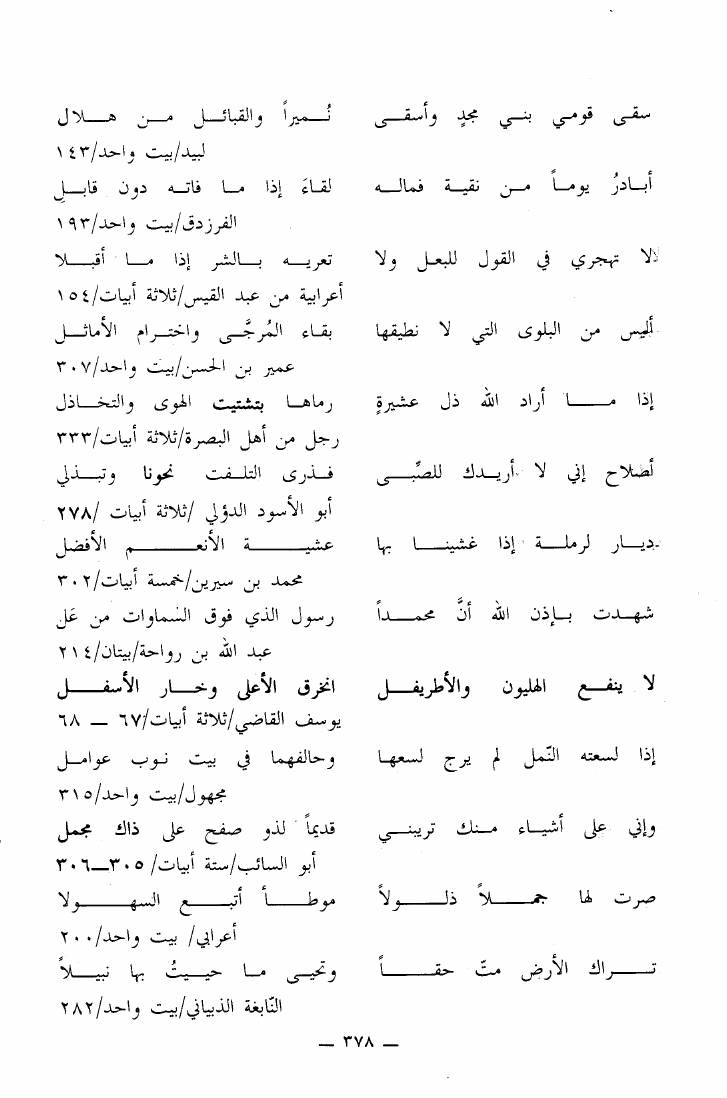 سقى قومي بني مجدٍ وأسقى نُميراً والقبائل من هلال
لبيد/بيت واحد/١٤٣
أبادرُ يوماً من نقية فماله لقاءَ إذا ما فاته دون قابلِ
الفرزدق/بيت واحد/١٩٣
لا تهجري في القول للبعل ولا تعريه بالشر إذا ما أقبلا
أعرابية من عبد القيس/ثلاثة أبيات/١٥٤
أليس من البلوى التي لا نطيقها بقاء المُرجَّى واخترام الأماثل
عمير بن الحسن/بيت واحد/٣٠٧
إذا ما أراد الله ذل عشيرةٍ رماها بتشتيت الهوى والتخاذل
رجل من أهل البصرة/ثلاثة أبيات/٣٣٣
أصلاح إني لا أريدك للصِّبى فذرى التلفت نحونا وتبذلي
أبو الأسود الدؤلي /ثلاثة أبيات /٢٧٨
ديار لرملة إذا غشينا بها عشية الأنعم الأفضل
محمد بن سيرين/خمسة أبيات/٣٠٢
شهدت بإذن الله أنَّ محمداً رسول الذي فوق السماوات من عَلِ
عبد الله بن رواحة/بيتان/٢١٤
لا ينفع الهليون والأطريفل انخرق الأعلى وخار الأسفل
يوسف القاضي/ثلاثة أبيات/٦٧ — ٦٨
إذا لسعته النّمل لم يرج لسعها وحالفهما في بيت نوب عوامل
مجهول/بيت واحد/٣١٥
وإني على أشياء منك تريبني قديماً لذو صفح على ذاك مجمل
أبو السائب/ستة أبيات/ ٣٠٥—٣٠٦
صرت لها جملاً ذلولاً موطأ أتبع السهولا
أعرابي/ بيت واحد/٢٠٠
تراك الأرض متّ حقاً وتحيى ما حييتُ بها نبيلاً
النّابغة الذبياني/بيت واحد/٢٨٢
— ٣٧٨ —